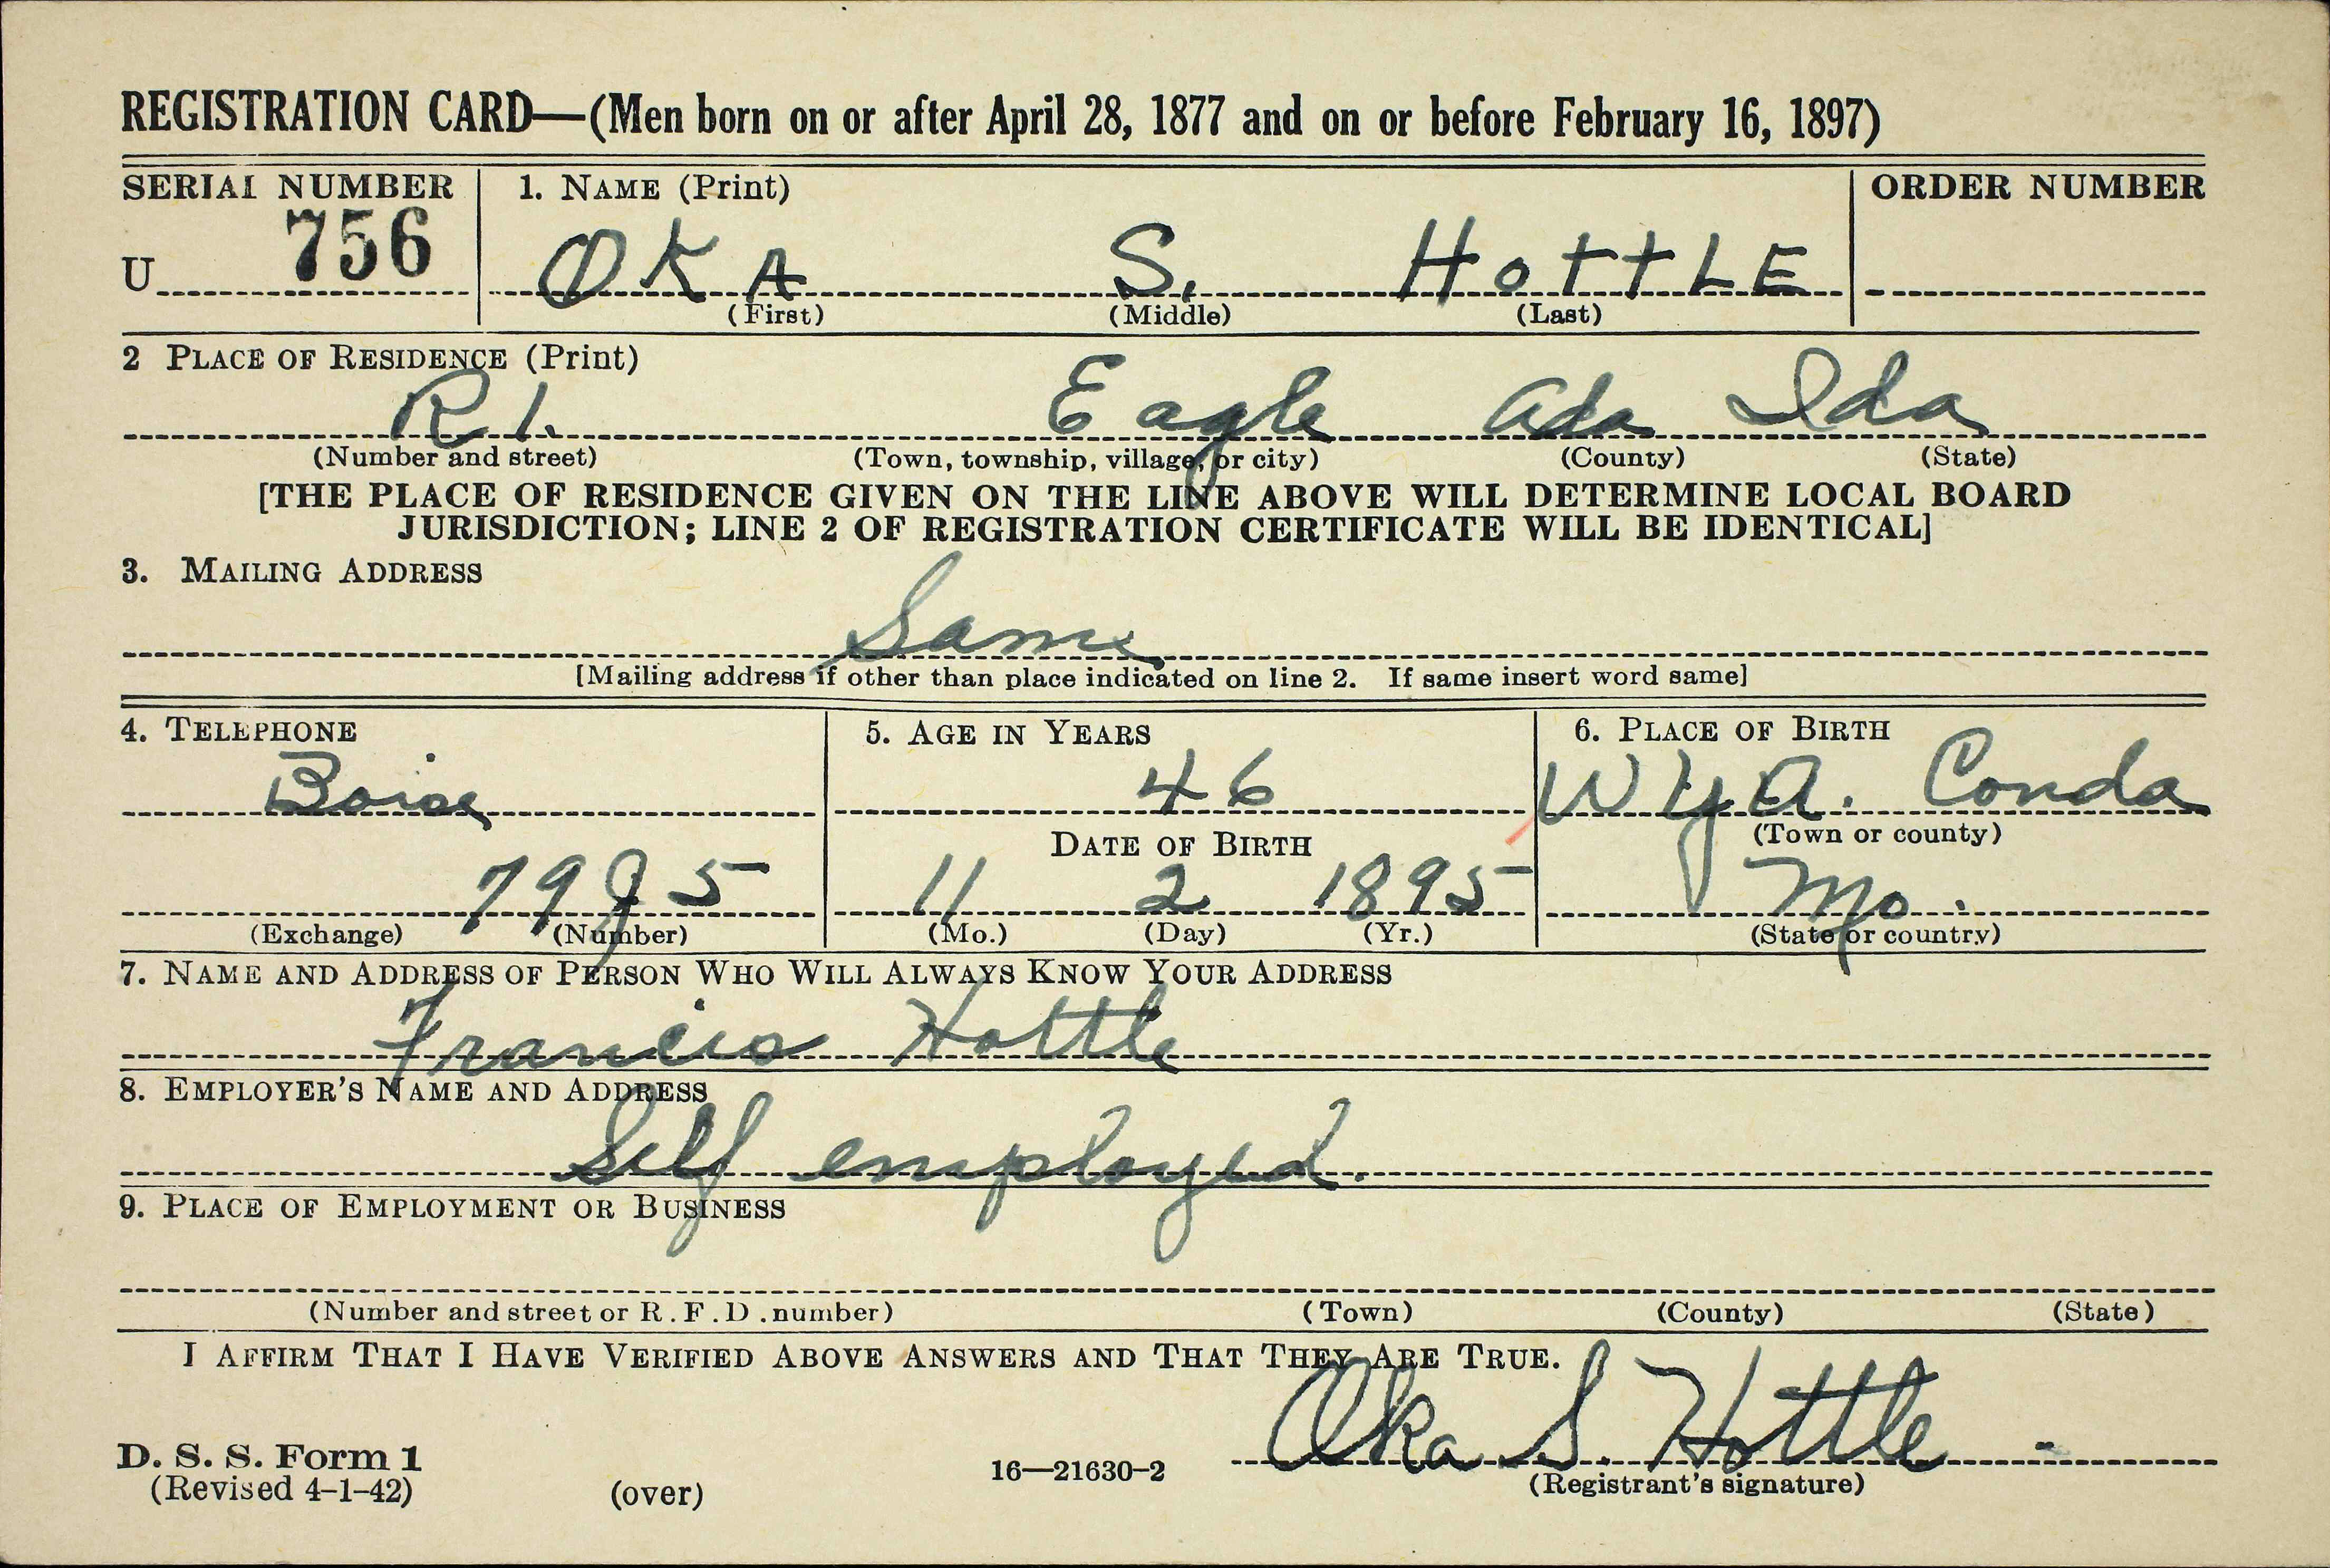 REGISTRATION CARD—(Men born on or after April 28, 1877 and on or before February 16, 1897)
SERIAL NUMBER 1. NAME (Print) ORDER NUMBER
U 756 OKA S. HOTTLE
(First) (Middle) (Last)
2 PLACE OF RESIDENCE (Print)
R 1. Eagle Ada Ida
(Number and street) (Town, township, village, or city) (County) (State)
[THE PLACE OF RESIDENCE GIVEN ON THE LINE ABOVE WILL DETERMINE LOCAL BOARD
JURISDICTION; LINE 2 OF REGISTRATION CERTIFICATE WILL BE IDENTICAL]
3. MAILING ADDRESS
Same
[Mailing address if other than place indicated on line 2. If same insert word same]
4. TELEPHONE 5. AGE IN YEARS 6. PLACE OF BIRTH
Boise 46 WyA. Conda
DATE OF BIRTH (Town or county)
79J5 11 2 1895 Mo.
(Exchange) (Number) (Mo.) (Day) (Yr.) (State or country)
7. NAME AND ADDRESS OF PERSON WHO WILL ALWAYS KNOW YOUR ADDRESS
Francis Hottle
8. EMPLOYER'S NAME AND ADDRESS
Self employed.
9. PLACE OF EMPLOYMENT OR BUSINESS
(Number and street or R.F.D. number) (Town) (County) (State)
I AFFIRM THAT I HAVE VERIFIED ABOVE ANSWERS AND THAT THEY ARE TRUE.
Oka S. Hottle
D. S. S. Form 1
(Revised 4-1-42) (over) 16—21630-2 (Registrant's signature)